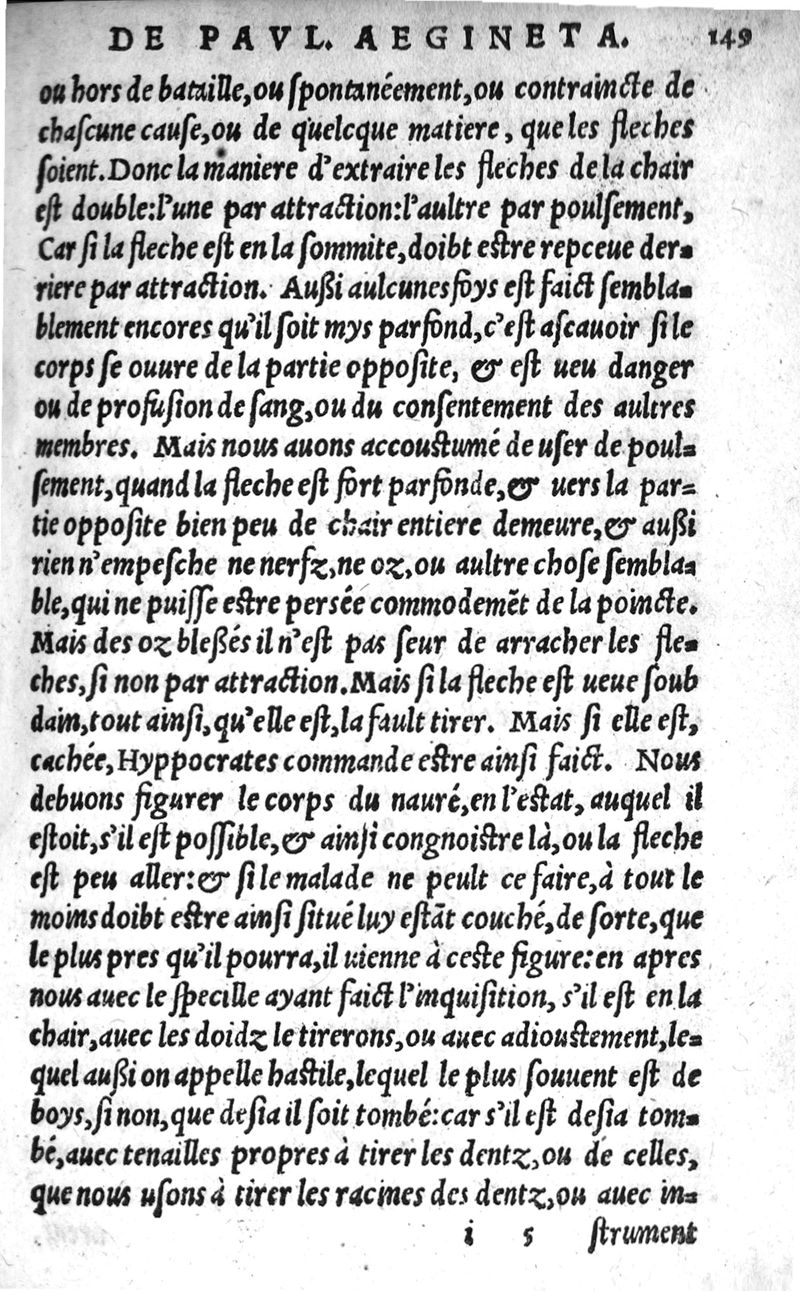 DE PAVL. AEGINETA. 149
ou hors de bataille, ou ſpontanéement, ou contraincte de
chaſcune cauſe, ou de quelcque matiere, que les fleches
ſoient. Donc la maniere d'extraire les fleches de la chair
eſt double: l'une par attraction: l'aultre par poulſement,
Car ſi la fleche eſt en la ſommite, doibt eſtre repceue der-
riere par attraction. Auſſi aulcunes foys eſt faict ſembla-
blement encores qu'il ſoit mys parfond, c'eſt aſcauoir ſi le
corps ſe ouure de la partie oppoſite, & eſt ueu danger
ou de profuſion de ſang, ou du conſentement des aultres
membres. Mais nous auons accouſtumé de uſer de poul-
ſement, quand la fleche eſt fort parfonde, & uers la par-
tie oppoſite bien peu de chair entiere demeure, & auſſi
rien n'empeſche ne nerfz, ne oz, ou aultre choſe ſembla-
ble, qui ne puiſſe eſtre persée commodemēt de la poincte.
Mais des oz bleßés il n'eſt pas ſeur de arracher les fle-
ches, ſi non par attraction. Mais ſi la fleche eſt ueue ſoub
dain, tout ainſi, qu'elle eſt, la fault tirer. Mais ſi elle eſt,
cachée, Hyppocrates commande eſtre ainſi faict. Nous
debuons figurer le corps du nauré, en l'eſtat, auquel il
eſtoit, s'il eſt poſſible, & ainſi congnoiſtre là, ou la fleche
eſt peu aller: & ſi le malade ne peult ce faire, à tout le
moins doibt eſtre ainſi ſitué luy eſtāt couché, de ſorte, que
le plus pres qu'il pourra, il uienne à ceſte figure: en apres
nous auec le ſpecille ayant faict l'inquiſition, s'il eſt en la
chair, auec les doidz le tirerons, ou auec adiouſtement, le-
quel auſſi on appelle haſtile, lequel le plus ſouuent eſt de
boys, ſi non, que deſia il ſoit tombé: car s'il eſt deſia tom-
bé, auec tenailles propres à tirer les dentz, ou de celles,
que nous uſons à tirer les racines des dentz, ou auec in-
i 5 ſtrument